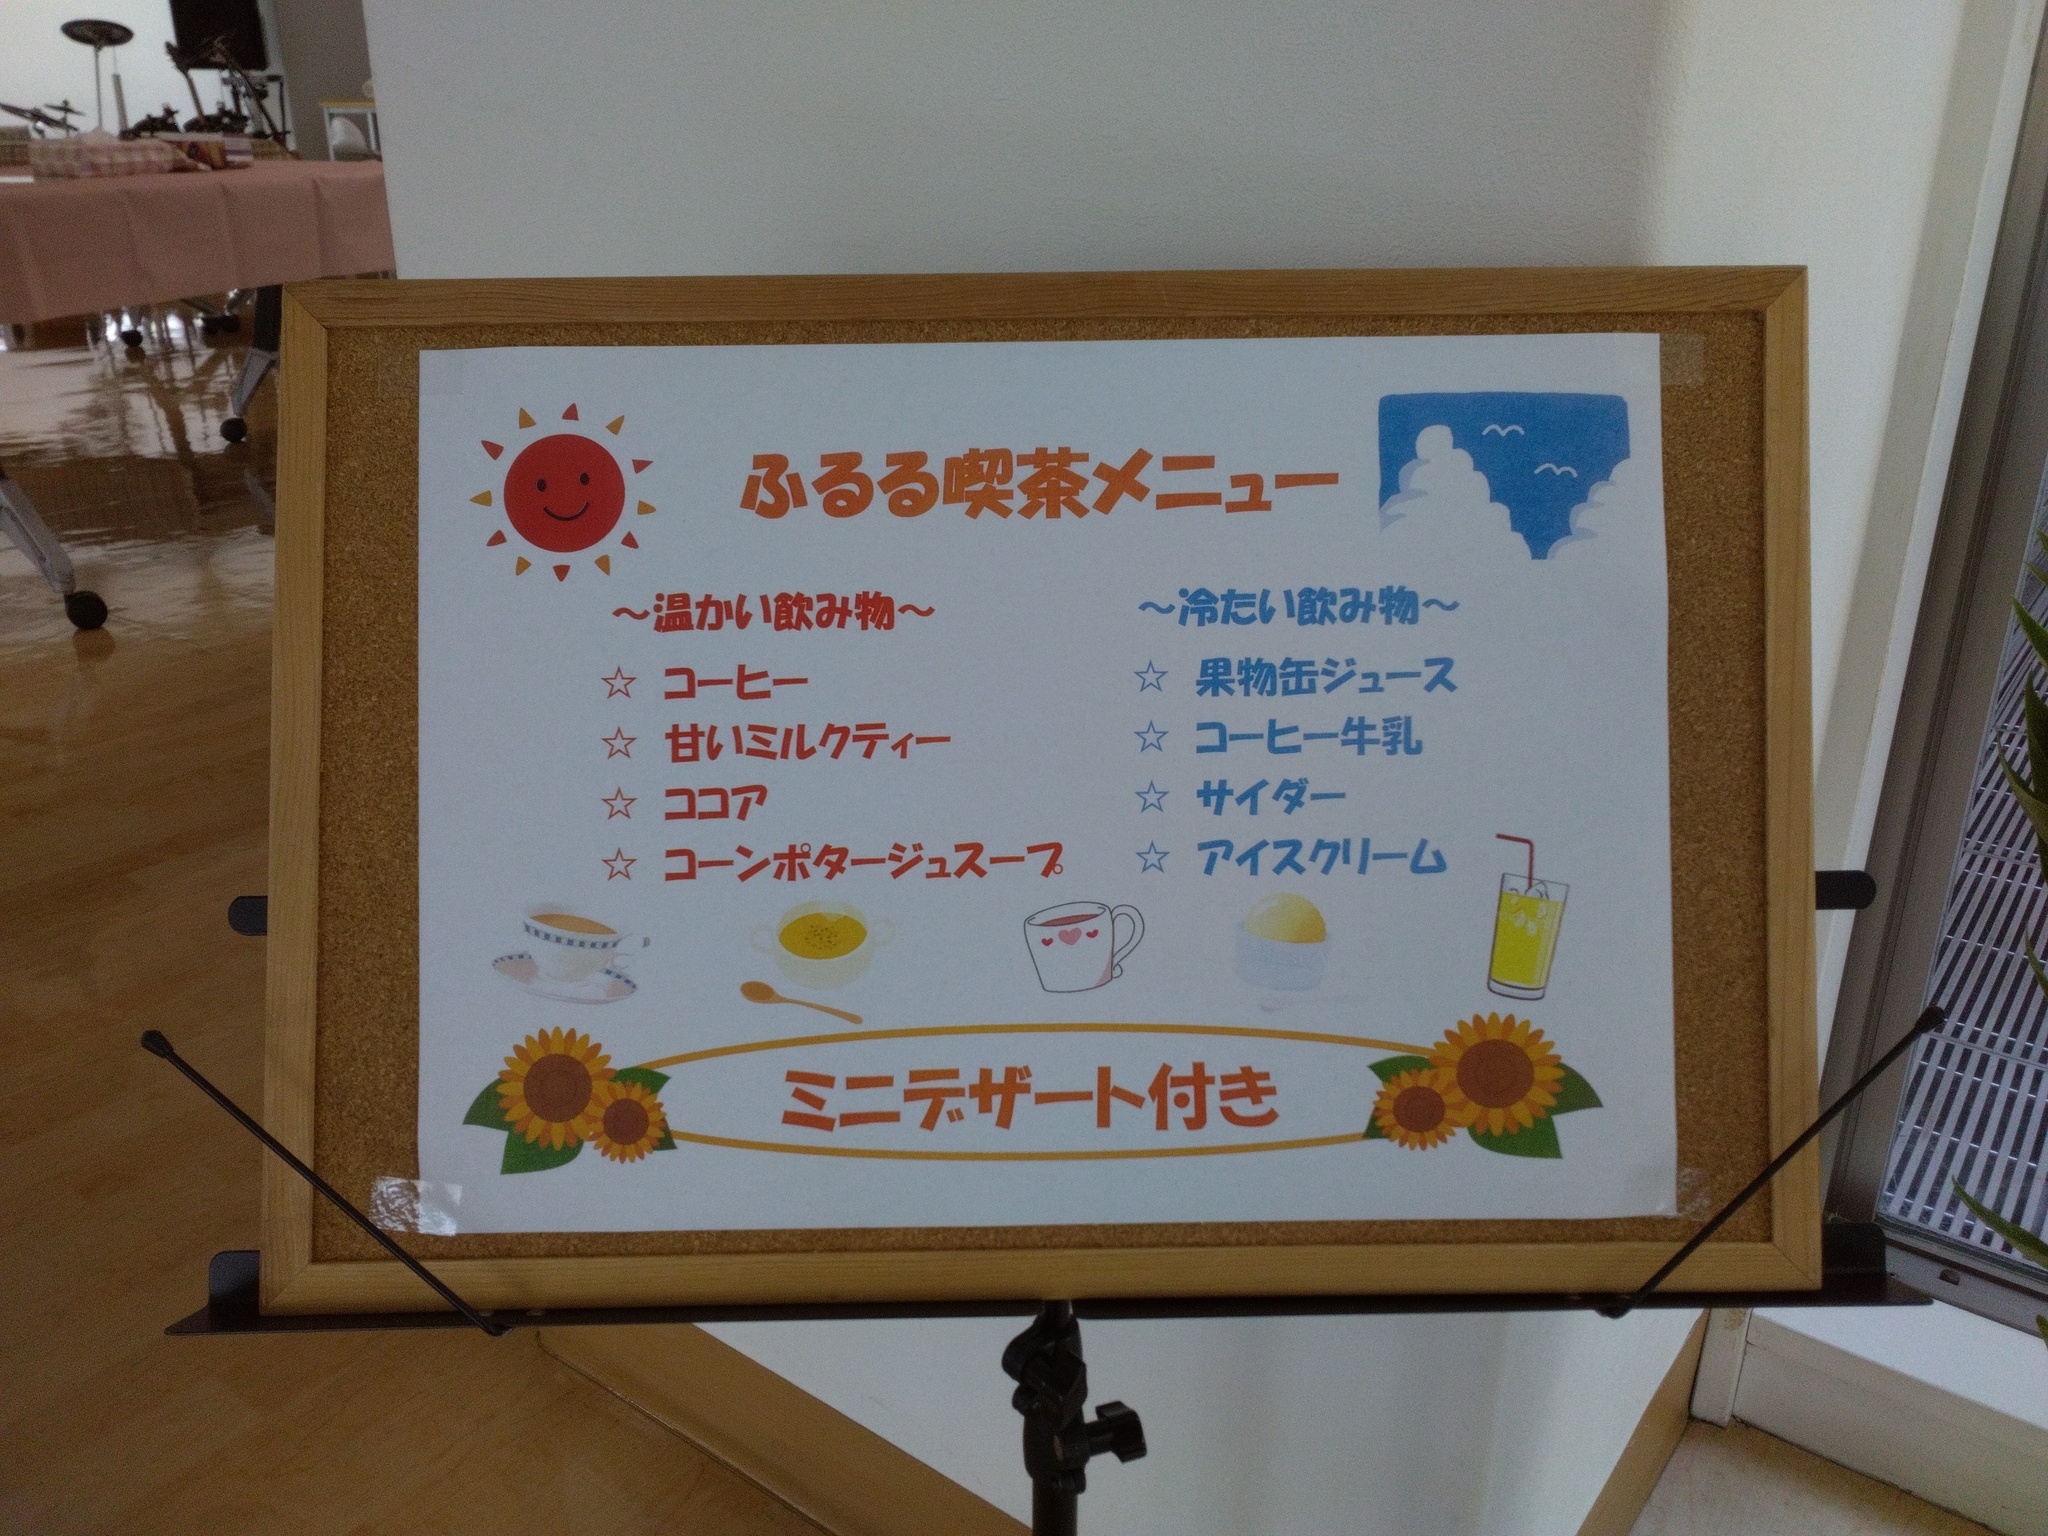 ふるる喫茶メニュー
～温かい飲み物～
☆ コーヒー
☆ 甘いミルクティー
☆ ココア
☆ コーンポタージュスープ
～冷たい飲み物～
☆ 果物缶ジュース
☆ コーヒー牛乳
☆ サイダー
☆ アイスクリーム
ミニデザート付き